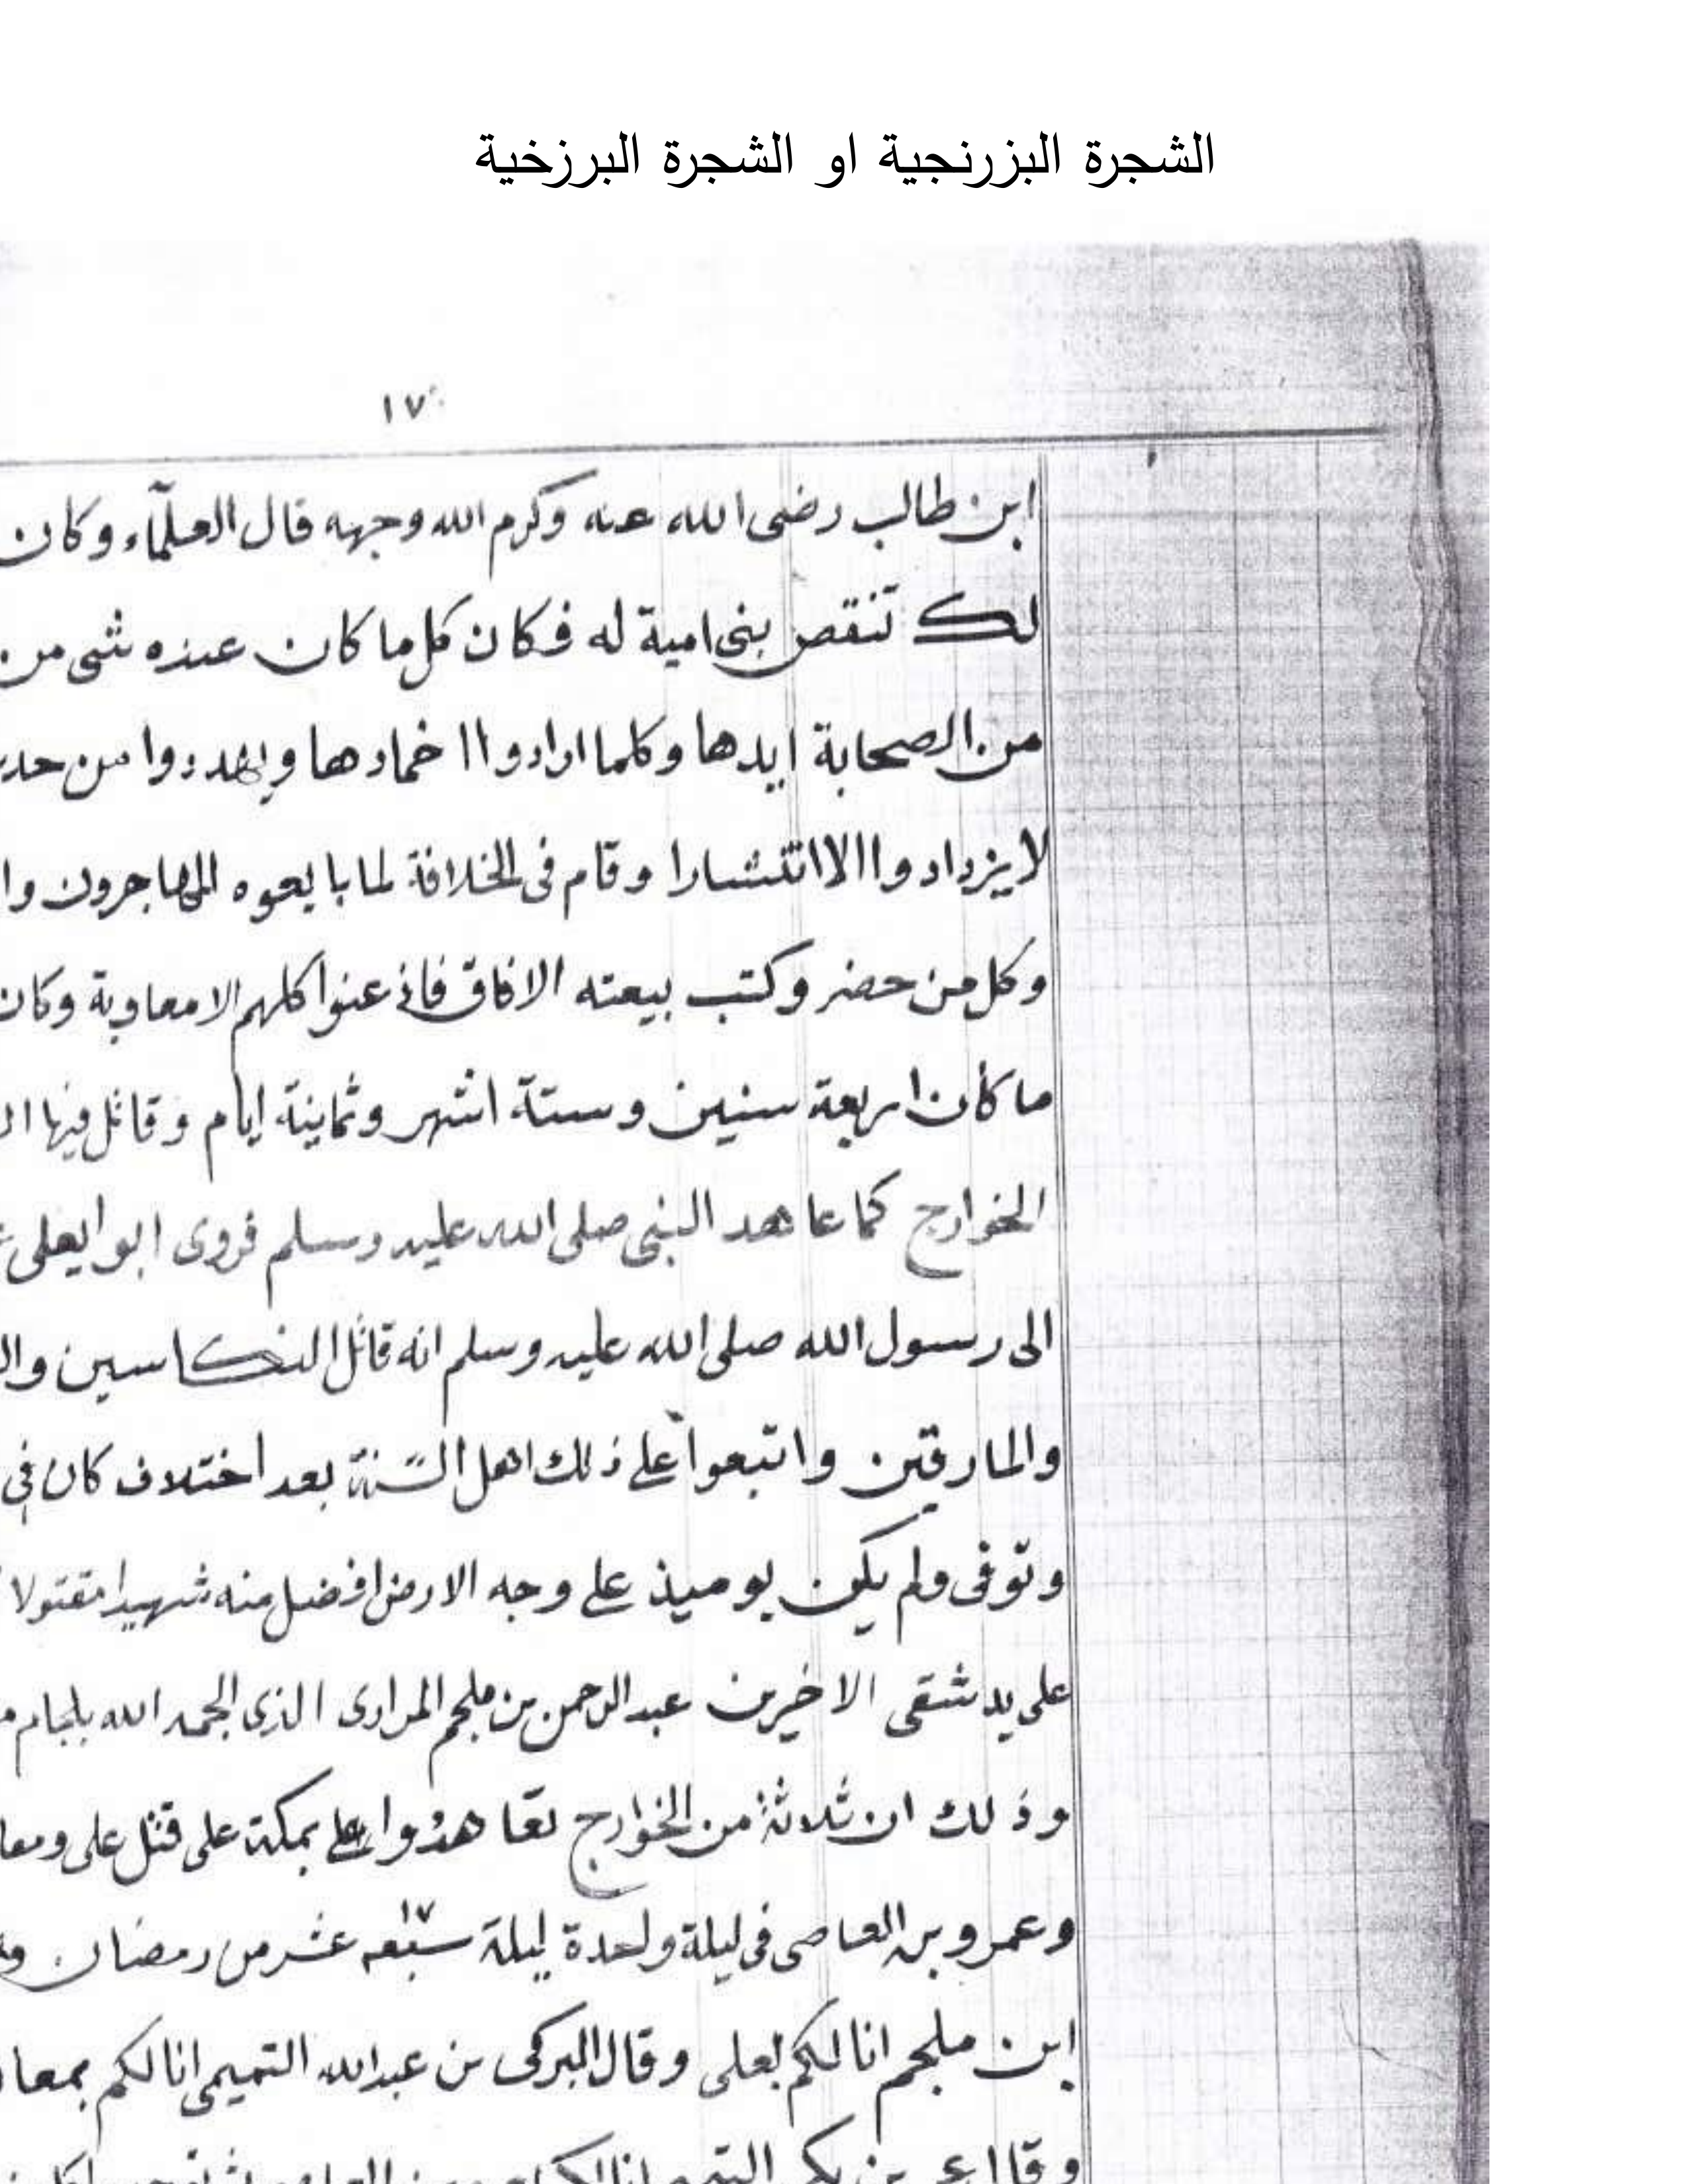 الشجرة البزرنجية او الشجرة البرزخية
١٧
ابن طالب رضى الله عنه وكرم الله وجهه قال العلمآء وكان
لك تنقص بنى امية له فكان كل ما كان عنده شى من
من الصحابة ايدها وكلما ارادوا اخمادها ويهددوا من حد
لا يزدادوا الا انتشارا وقام فى الخلافة لما بايعوه المهاجرون وا
وكل من حضر وكتب بيعته الافاق فاذعنوا كلهم الا معاوية وكان
ما كان اربعة سنين وستة اشهر وثمانية ايام وقاتل فيها ال
الخوارج كما عاهد النبى صلى الله عليه وسلم فروى ابوا يعلى
الى رسول الله صلى الله عليه وسلم انه قاتل النكاسين وال
والمارقين واتبعوا على ذلك اهل السنة بعد اختلاف كان فى
وتوفى ولم يكن يوميذ على وجه الارض افضل منه شهيدا مقتولا
على يد شقى الاخيرين عبد الرحمن بن ملجم المرادى الذى الجمه الله بلجام م
وذلك ان ثلاثة من الخوارج تعاهدوا على بمكة على قتل على ومعا
وعمرو بن العاصى فى ليلة واحدة ليلة سبعه ١٧ عشر من رمضان
ابن ملجم انا لكم لعلى وقال البركى بن عبد الله التميمى انا لكم بمعا